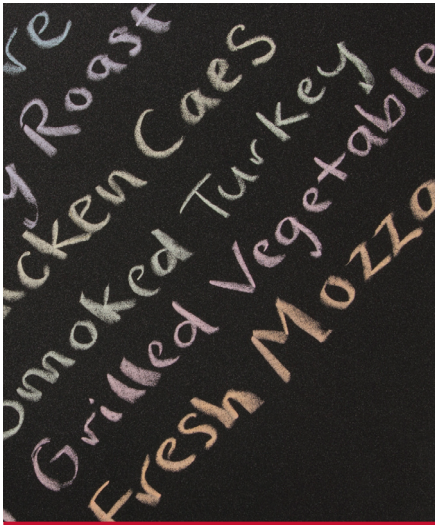 re
y Roast
icken Caes
moked Turkey
Grilled Vegetable
Fresh Mozza